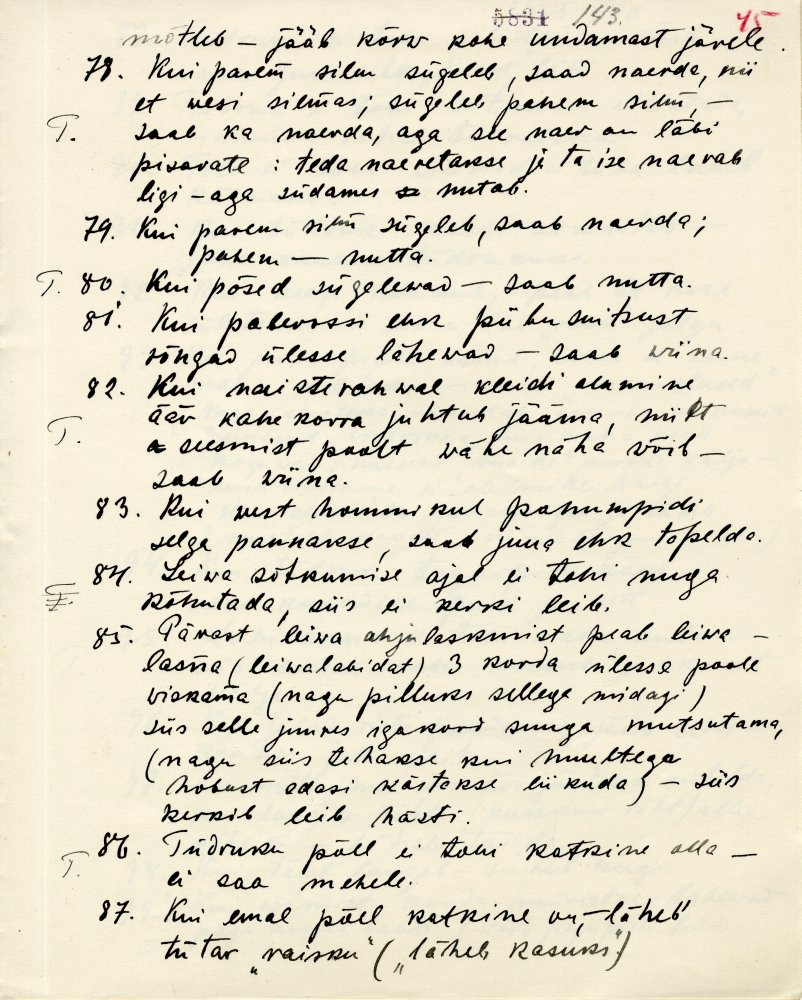 5831 143. 45
mõtleb – jääb kõrw kohe undamast järele.
78. Kui parem silm sügeleb, saad naerda, nii
et wesi silmas; sügeleb pahem silm, –
T. saab ka naerda, aga see naer on läbi
pisarate : teda naeretakse ja ta ise naerab
ligi – aga südames nutab.
79. Kui parem silm sügeleb, saab naerda;
pahem — nutta.
T. 80. Kui põsed sügelewad – saab nutta.
81. Kui paberossi ehk piibu suitsust
rõngad ülesse lähewad – saab wiina.
82. Kui naisterahwal kleidi alumine
äär kahekorra juhtub jääma, niit
T. seesmist poolt wähe näha wõib –
saab wiina.
83. Kui west hommikul pahumpidi
selga pannakse, saab juua ehk tapelda.
84. Leiwa sõtkumise ajal ei tohi nuga
kõhutada, siis ei kerki leib.
85. Pärast leiwa ahjulaskmist peab leiwa –
lasna (leiwalabidat) 3 korda ülesse poole
wiskama (nagu pilluks sellega midagi)
siis selle juures igakord suuga mutsutama,
(nagu siis tehakse kui huultega
hobust edasi kästakse liikuda) – siis
kerkib leib hästi.
86. Tüdruku põll ei tohi katkine olla –
T. ei saa mehele.
87. Kui emal põll katkine on, – läheb
tütar „raisku“ („läheb kasuks“)